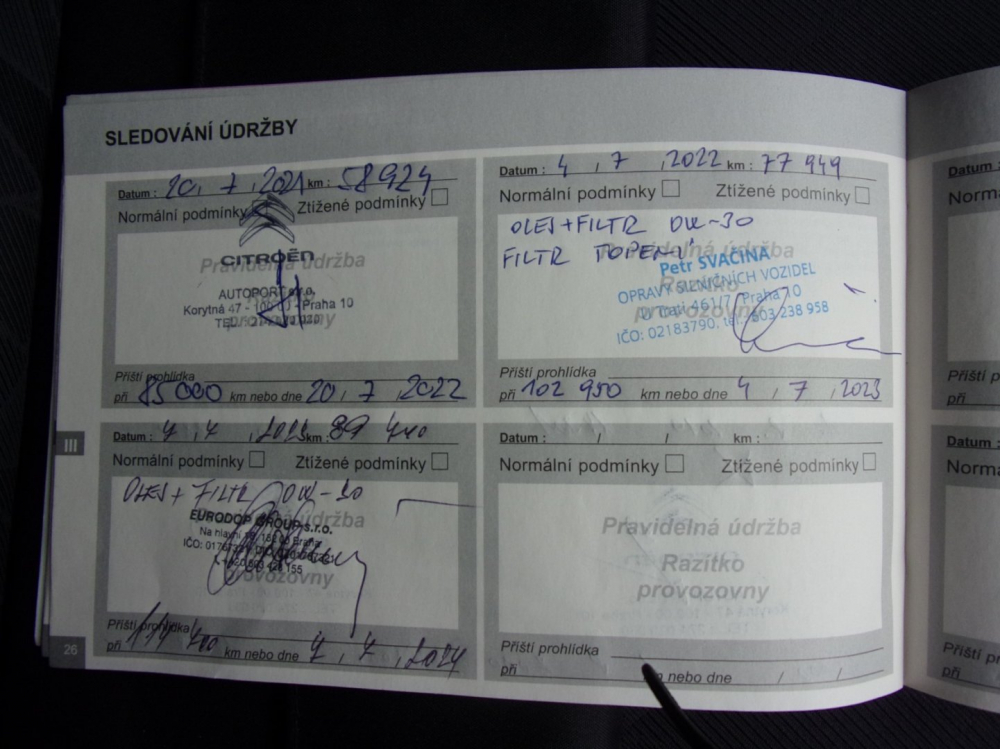 SLEDOVÁNÍ ÚDRŽBY
Datum : 20, 7 ,2021 km : 58924
Normální podmínky Ztížené podmínky
CITROËN
Pravidelná údržba
AUTOPORT s.r.o.
Korytná 47 - Praha 10
provozovny
Příští prohlídka
při 85 000 km nebo dne 20 , 7 , 2022
Datum : 4 , 7 ,2022 km : 77 949
Normální podmínky Ztížené podmínky
OLEJ+FILTR OW-30
FILTR TOPENÍ
Pravidelná údržba
Petr SVAČINA
OPRAVY SILNIČNÍCH VOZIDEL
Razítko
461/7, Praha 10
provozovny
IČO: 02183790, tel.: 603 238 958
Příští prohlídka
při 102 950 km nebo dne 4 , 7 , 2023
III
Datum : km : 89 440
Normální podmínky Ztížené podmínky
OLEJ + FILTR OW-30
EURODOP GROUP s.r.o.
údržba
Na hlavní
IČO:
155
provozovny
Příští prohlídka
při km nebo dne 2024
Datum : / / km :
Normální podmínky Ztížené podmínky
Pravidelná údržba
Razítko
provozovny
Příští prohlídka
při km nebo dne / /
26
Datum :
Normá
Příští p
při
Datum :
Norma
Příští pr
při